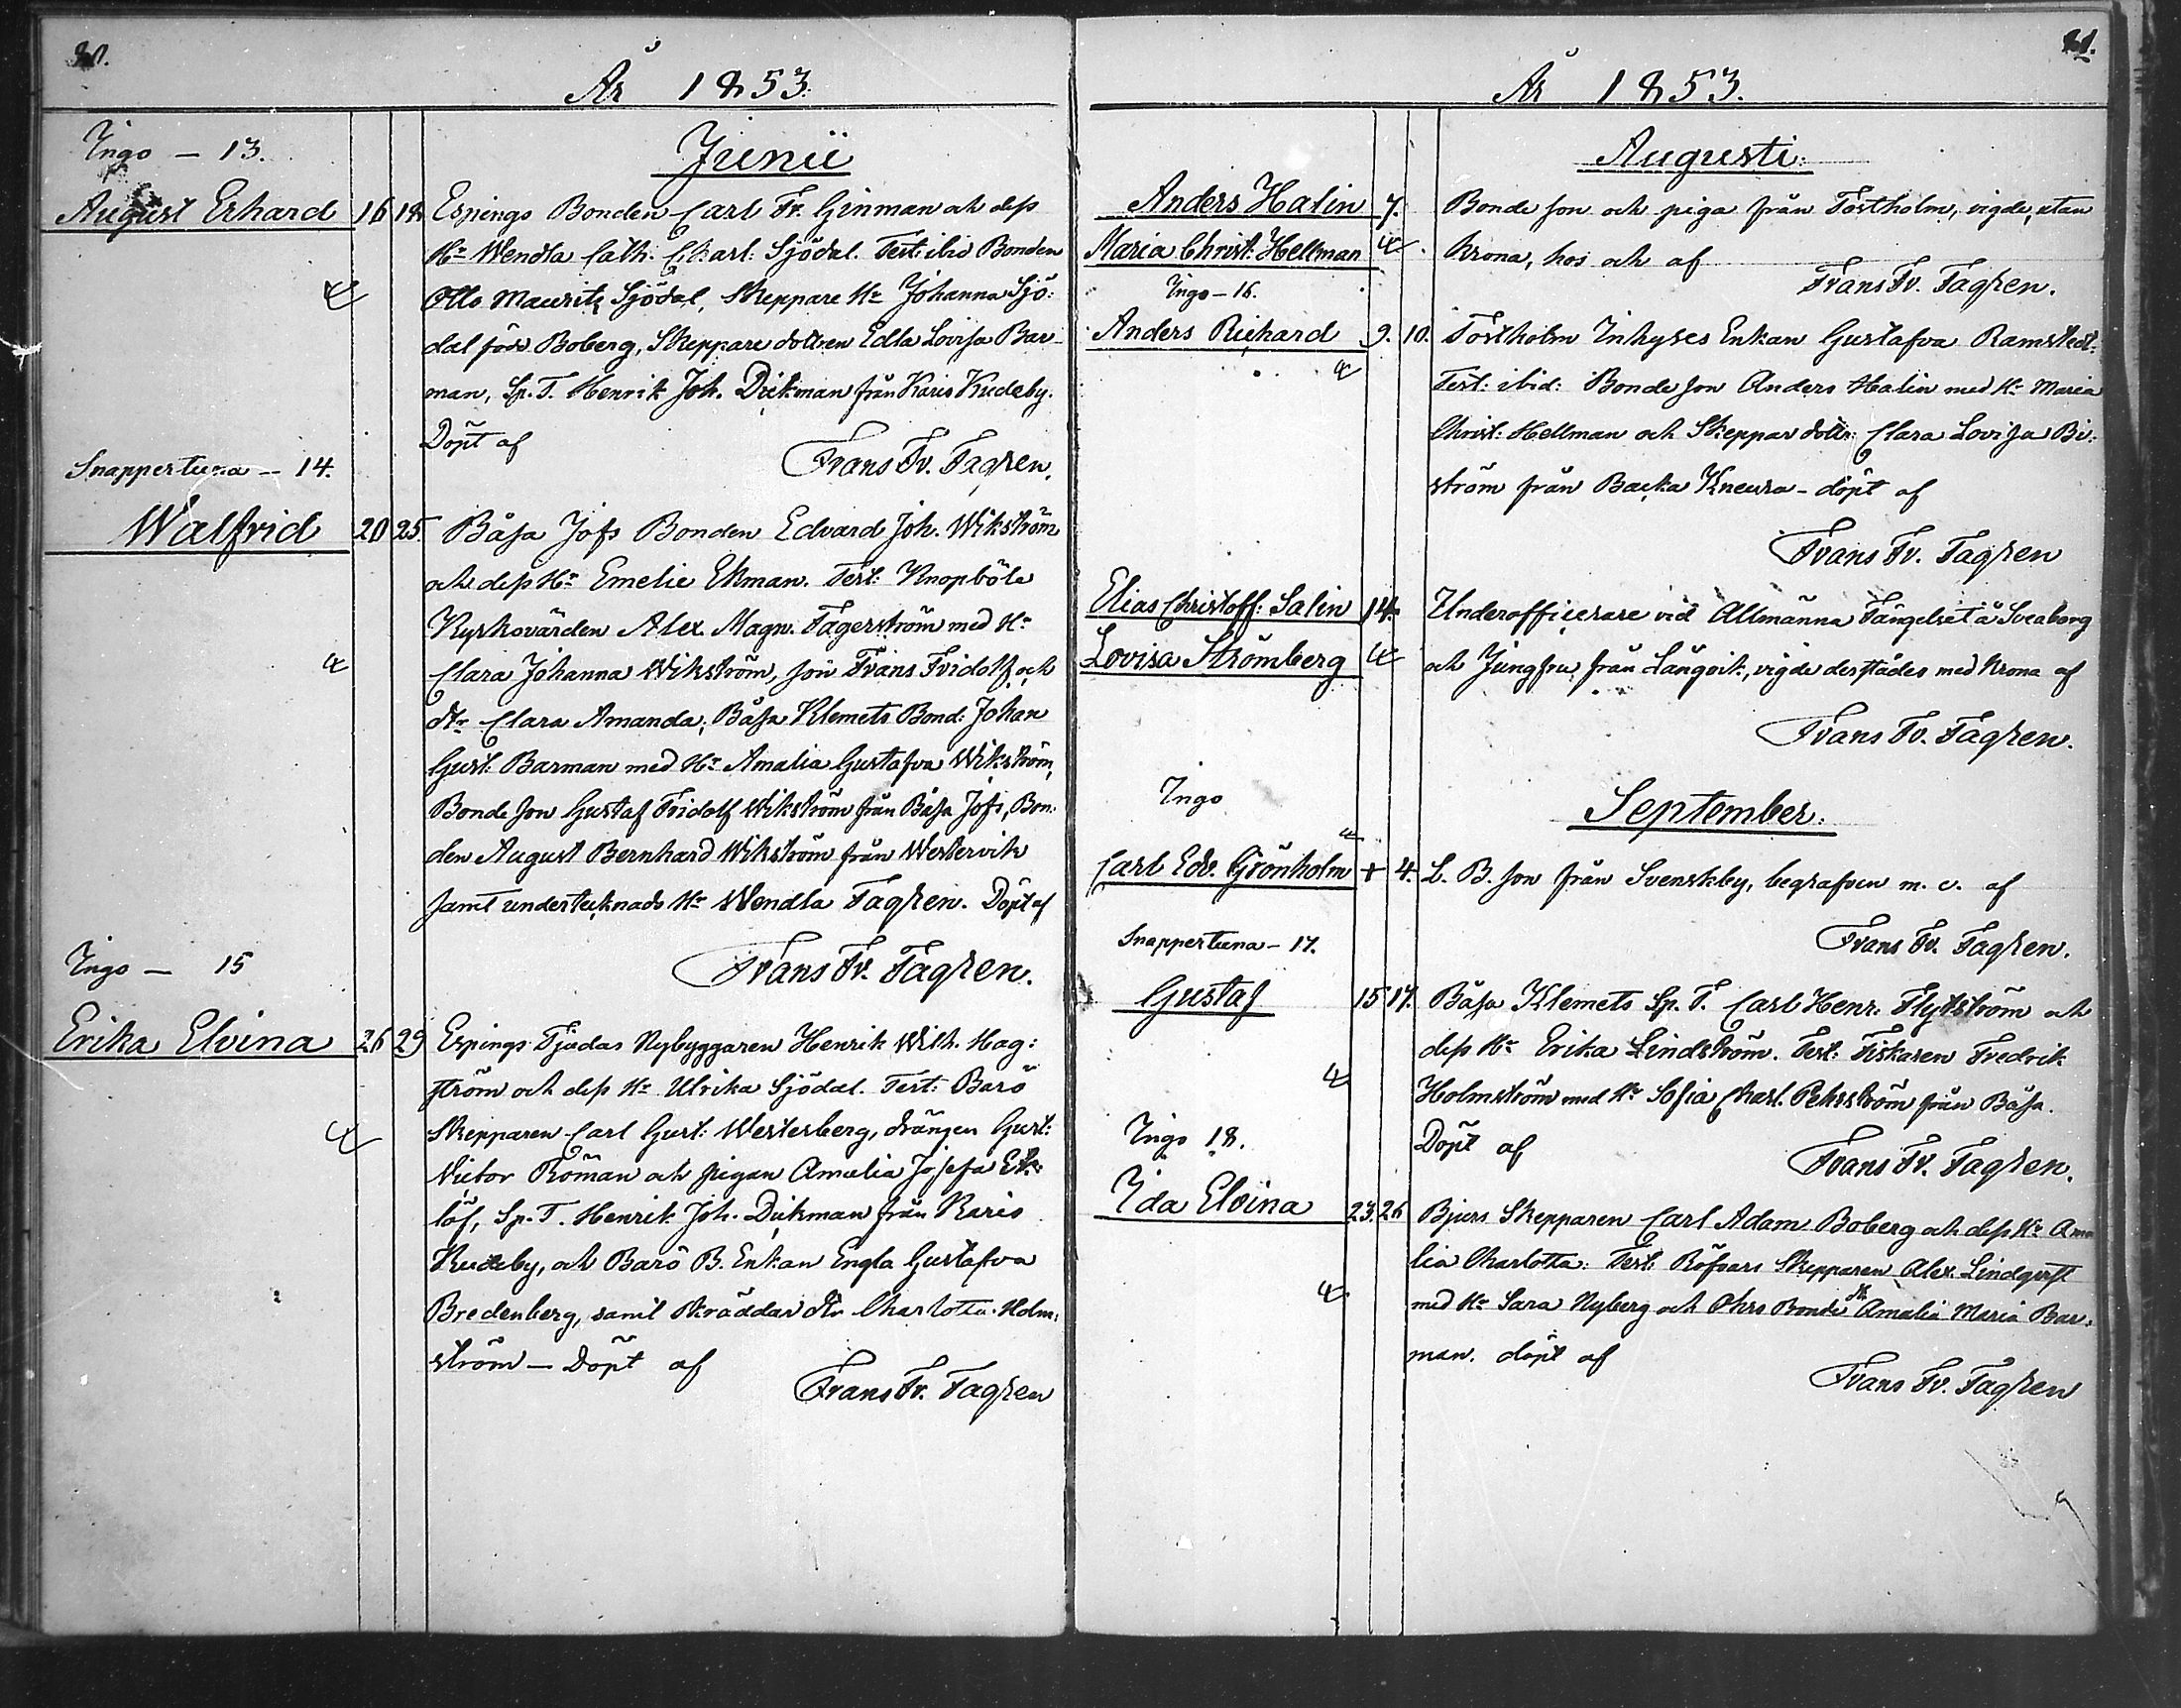 År 1853.
Ingo - 13.
Junii
August Erhard 16 18 Espings Bonden Carl Fr. Ginman och dess
Hu Wendla Cath. Charl: Sjödal. Test: ibid Bonden
Otto Mauritz Sjödal, Skeppare Hu Johanna Sjö:
dal född Boberg, Skeppare dottren Edla Lovisa Bar-
man, Sp. T. Henrik Joh. Dickman från Karis Kudeby.
Döpt af
Frans Fr. Fagren.
Snappertuna - 14.
Walfrid 20 25. Båsa Jofs Bonden Edvard Joh. Wikström
och dess Hu Emelie Ekman. Test: Knopböle
Kyrkovärden Alex. Magn. Fagerström med Hu
Clara Johanna Wikström, son Frans Fridolf och
dtr Clara Amanda; Båsa Klemets Bond: Johan
Gust: Barman med Hu Amalia Gustafva Wikström,
Bonde son Gustaf Fridolf Wikström från Båsa Jofs, Bon:
den August Bernhard Wikström från Westervik
samt undertecknads Hu Wendla Fagren. Döpt af
Frans Fr. Fagren.
Ingo - 15
Erika Elvina 26 29 Espings Tjudas Nybyggaren Henrik Wilh. Hag:
ström och dess Hu Ulrika Sjödal. Test: Barö
Skepparen Carl Gust: Westerberg, drängen Gust:
Victor Roman och pigan Amalia Josefa Ek:
löf, Sp. T. Henrik Joh. Dickman från Karis
Kudeby, och Barö B. Enkan Engla Gustafva
Bredenberg, samt Skräddar dtr Charlotta Holm:
ström - Döpt af
Frans Fr. Fagren
År 1853.
Augusti.
Anders Halin 7. Bonde son och piga från Töstholm, vigde, utan
Maria Christ: Hellman krona, hos och af
Frans Fr. Fagren.
Ingo - 16.
Anders Richard 9. 10. Töstholm Inhyses Enkan Gustafva Ramstedt.
Test: ibid: Bonde son Anders Halin med Hu Maria
Christ: Hellman och Skeppar dottr: Clara Lovisa Bi:
ström från Backa - döpt af
Frans Fr. Fagren
Elias Christoff: Salin 14. Underofficerare vid Allmänna Fängelset å Sveaborg
Lovisa Strömberg och Jungfru från Långvik, vigde derstädes med krona af
Frans Fr. Fagren.
Ingo
September.
Carl Edv. Grönholm + 4. L. B. son från Svenskby, begrafven m. c. af
Frans Fr. Fagren.
Snappertuna - 17.
Gustaf 15 17. Båsa Klemets Sp. T. Carl Henr. Flytström och
dess Hu Erika Lindström. Test: Fiskaren Fredrik
Holmström med Hu Sofia Charl. Pehrström från Båsa.
Döpt af
Frans Fr. Fagren.
Ingo 18.
Ida Elvina 23. 26 Bjers Skepparen Carl Adam Boberg och dess Hu Ama
lia Charlotta. Test: Röfvars Skepparen Alex. Lindqvist
med Hu Sara Nyberg och Ohrs Bonde dtr Amalia Maria Bar:
man. döpt af
Frans Fr. Fagren